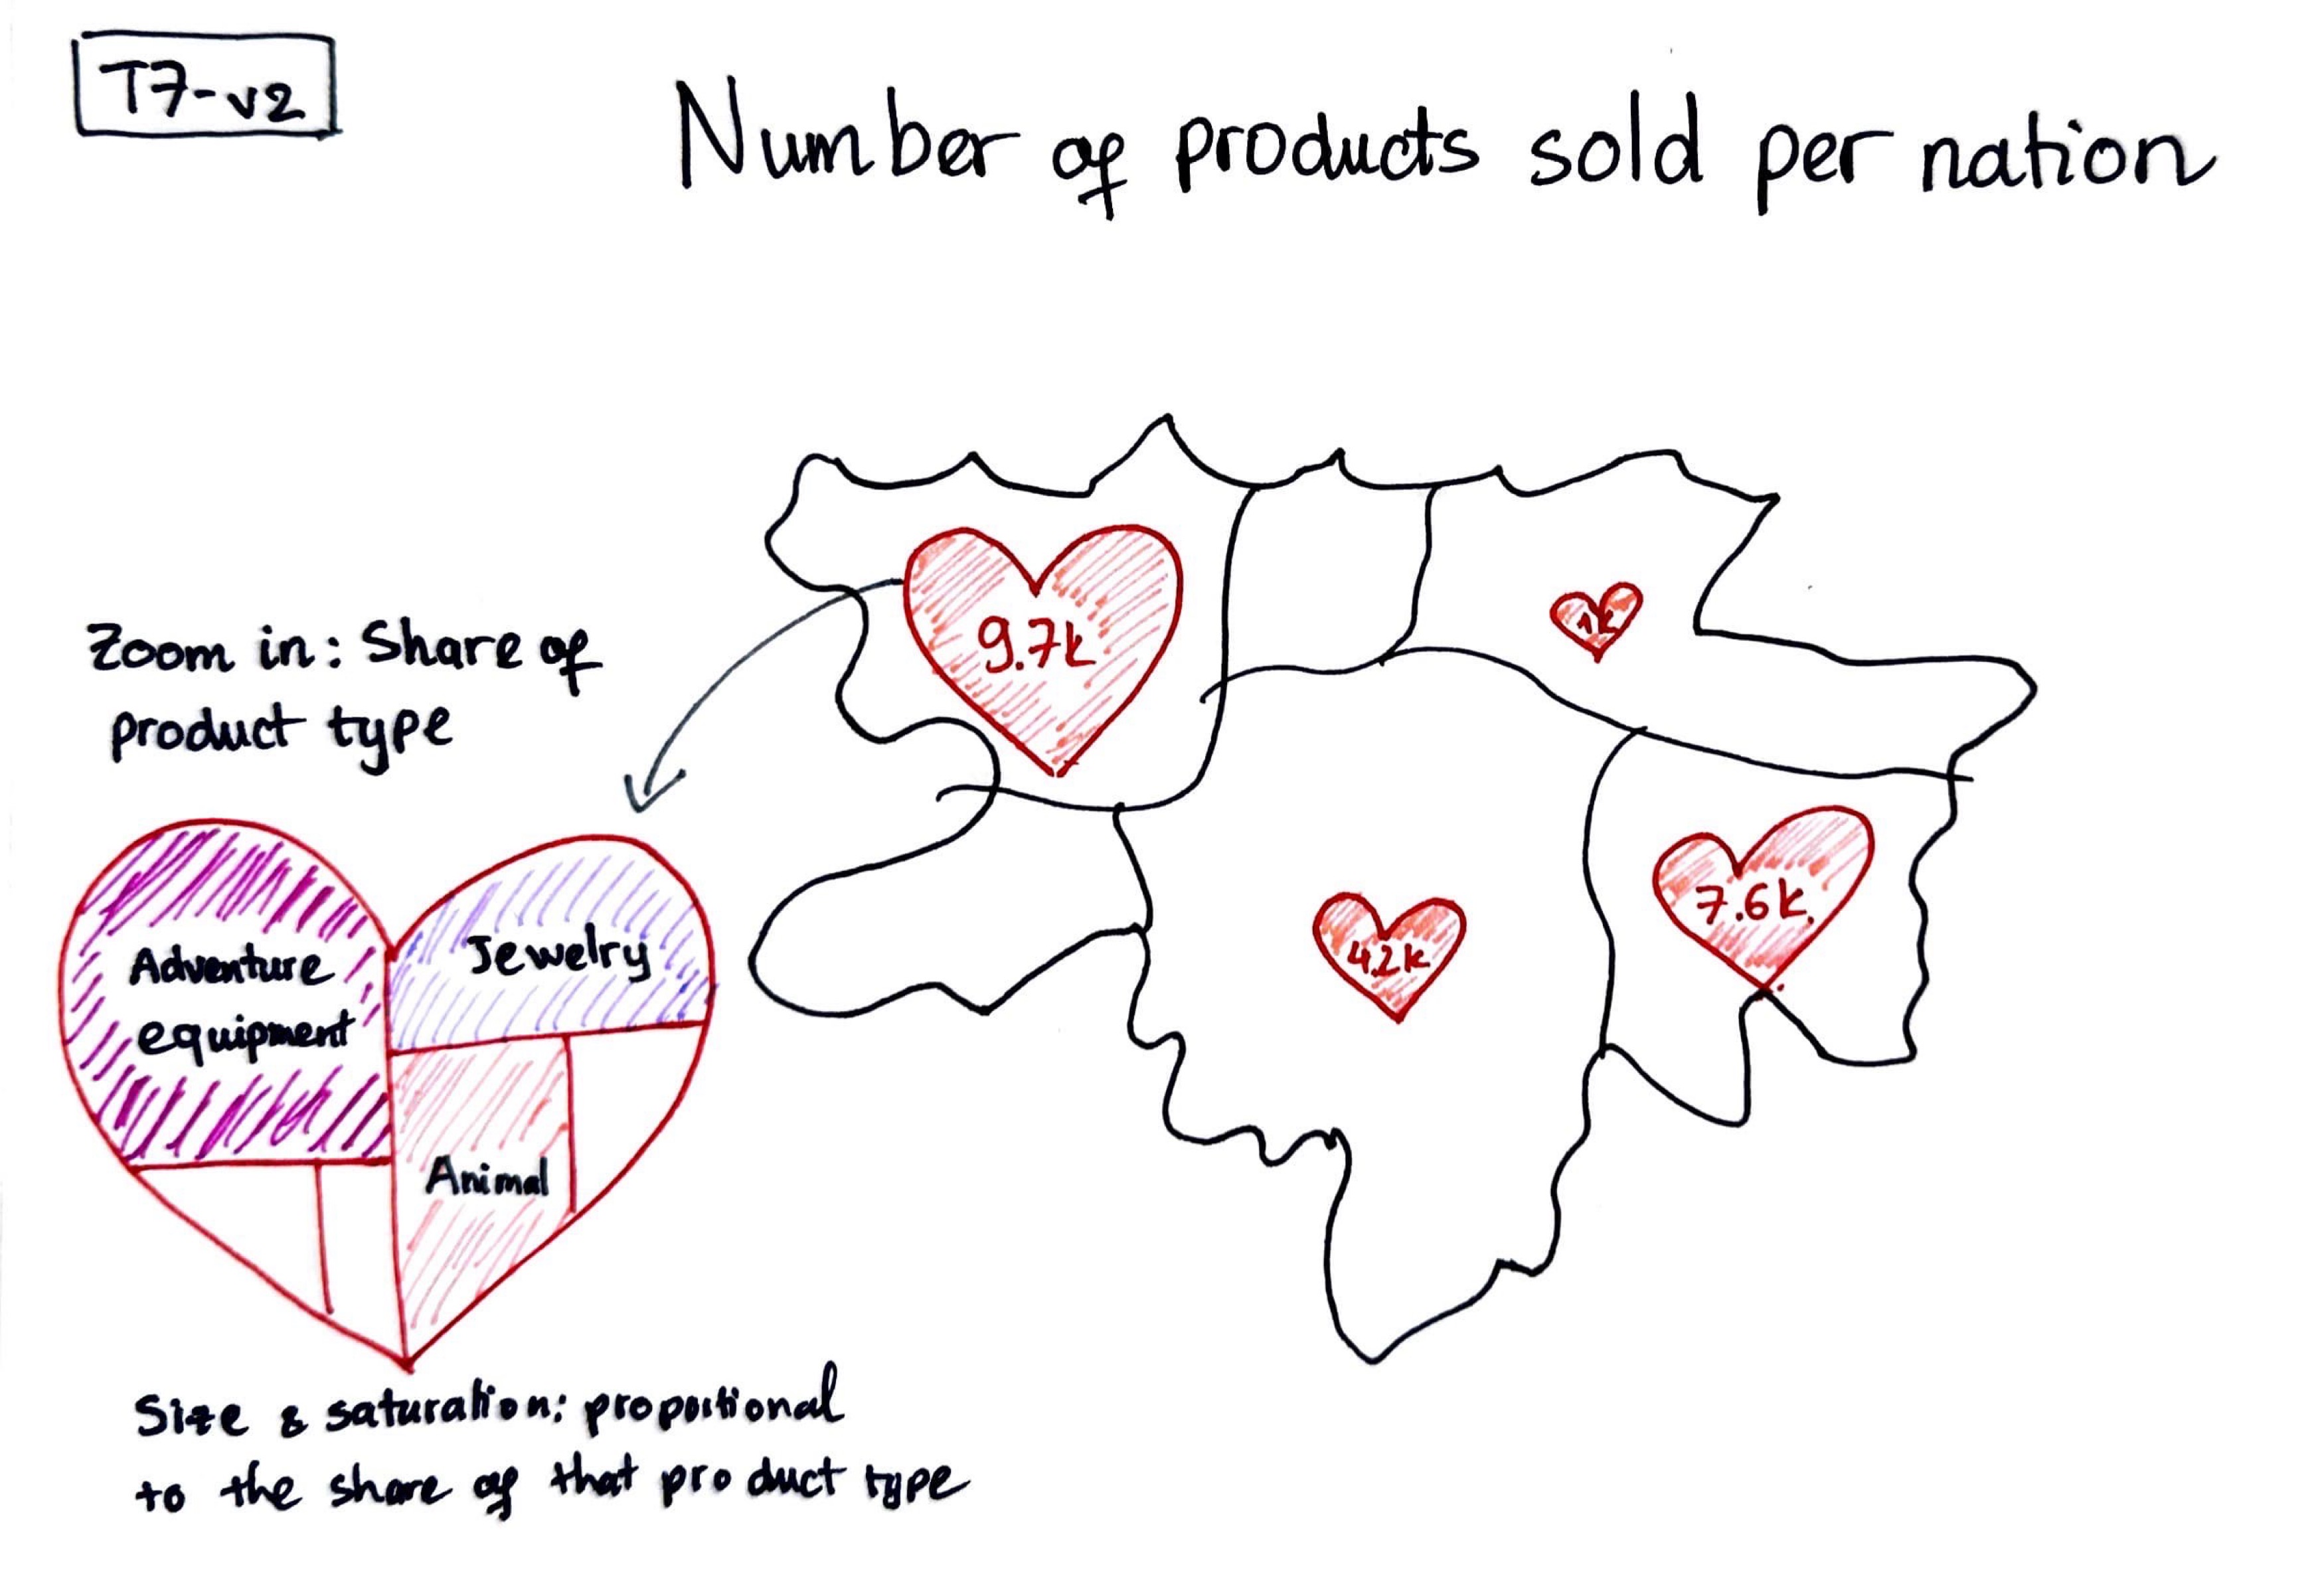 T7-v2
Number of products sold per nation
Zoom in: Share of
product type
9.7k
1k
7.6k
4.2k
Adventure
equipment
Jewelry
Animal
Size & saturation: proportional
to the share of that product type